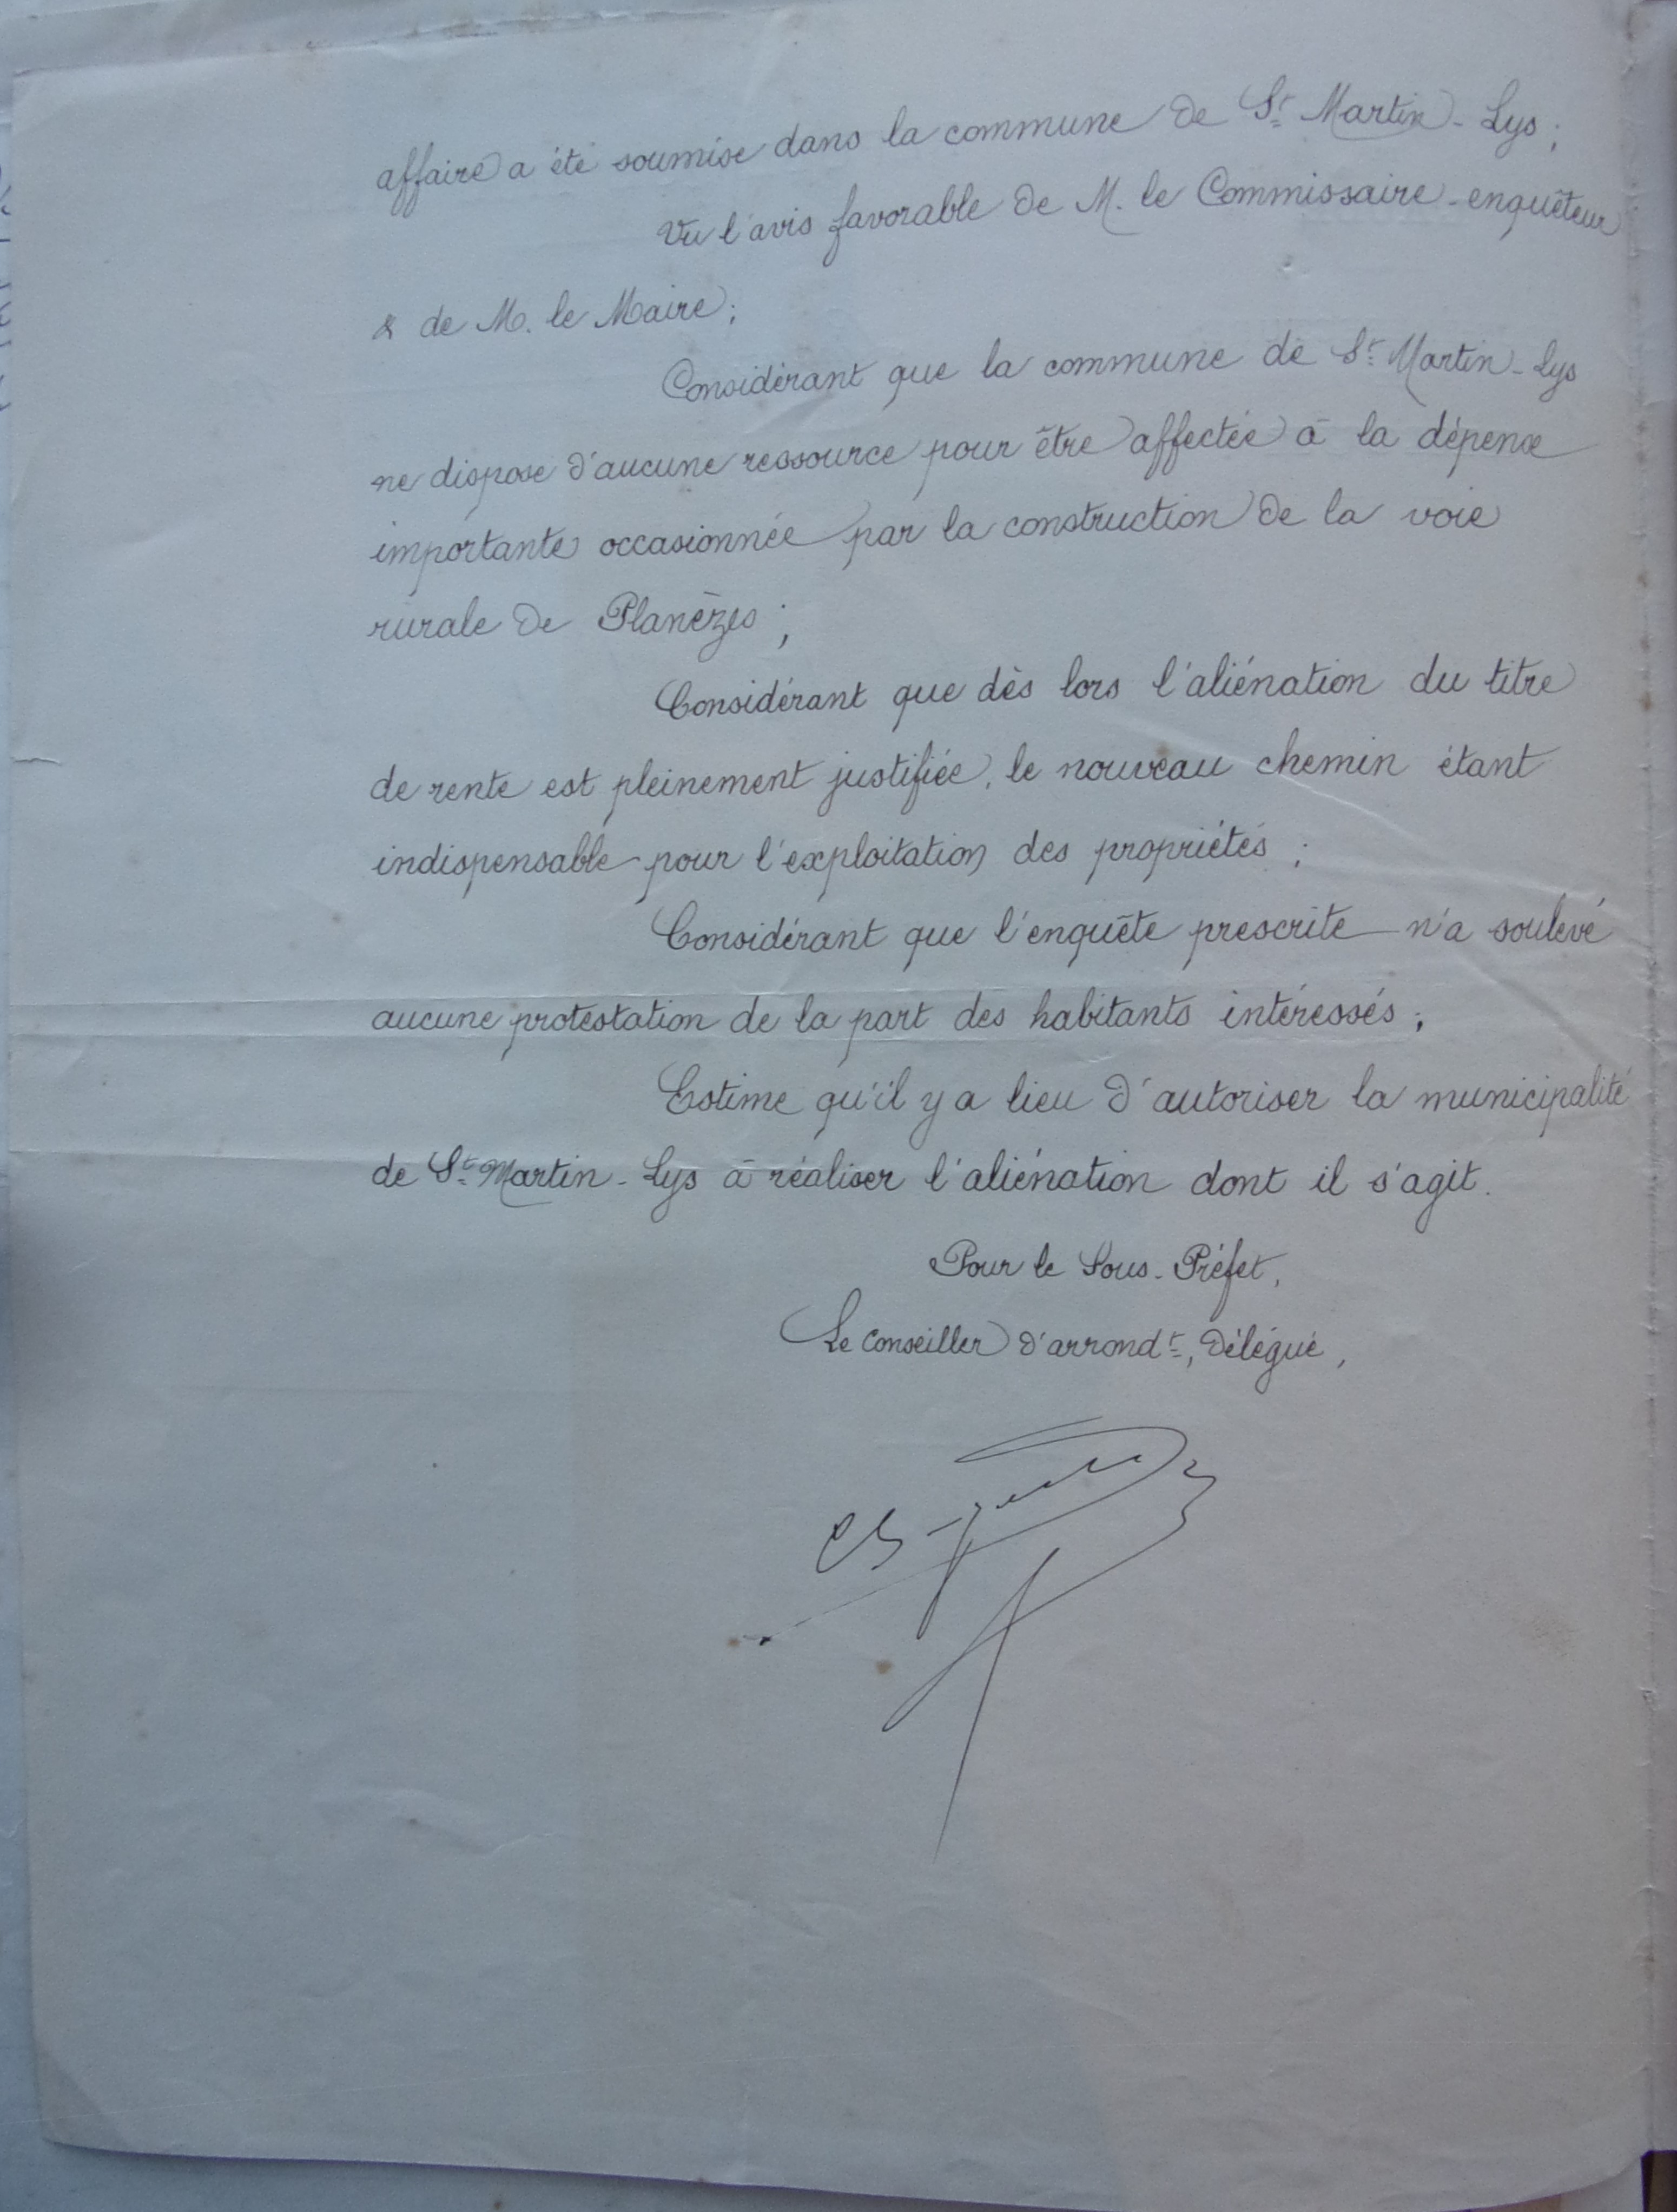 affaire a été soumise dans la commune de St Martin-Lys ;
Vu l'avis favorable de M. le Commissaire-enquêteur
& de M. le Maire ;
Considérant que la commune de St Martin-Lys
ne dispose d'aucune ressource pour être affectée à la dépense
importante occasionnée par la construction de la voie
rurale de Planèzes ;
Considérant que dès lors l'aliénation du titre
de rente est pleinement justifiée, le nouveau chemin étant
indispensable pour l'exploitation des propriétés ;
Considérant que l'enquête prescrite n'a soulevé
aucune protestation de la part des habitants intéressés ;
Estime qu'il y a lieu d'autoriser la municipalité
de St Martin-Lys à réaliser l'aliénation dont il s'agit.
Pour le Sous-Préfet,
Le Conseiller d'arrondt, délégué,